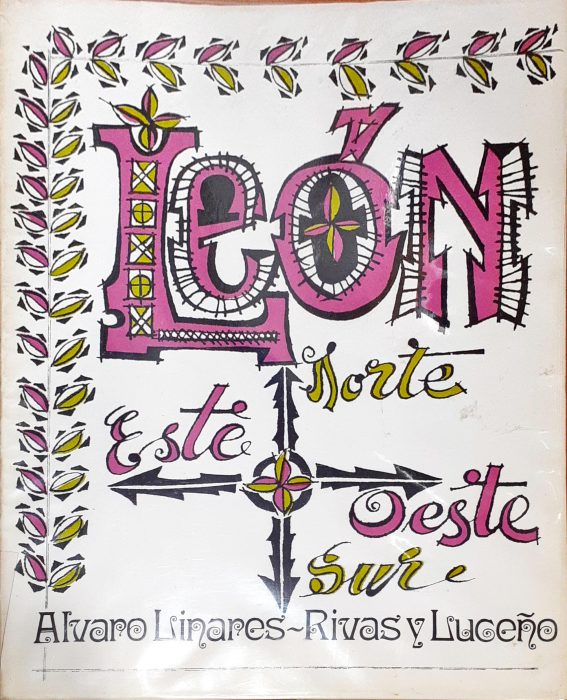 León
Norte
Este
Oeste
Sur
Alvaro Linares-Rivas y Luceño